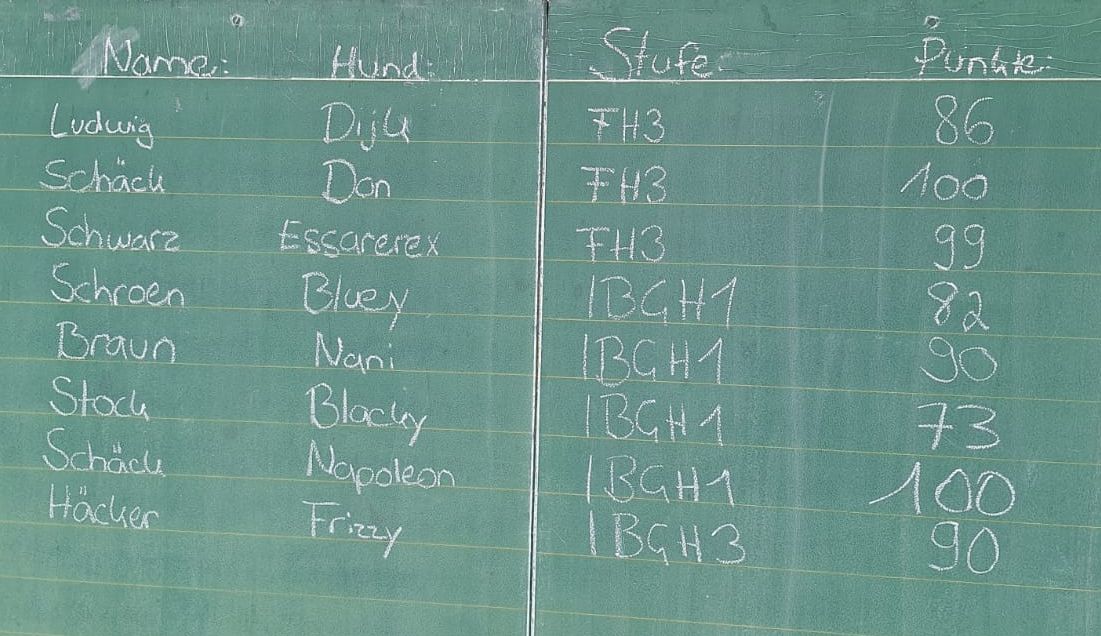 Name: Hund: Stufe: Punkte:
Ludwig Dijk FH3 86
Schäck Don FH3 100
Schwarz Essarerex FH3 99
Schroen Bluey IBGH1 82
Braun Nani IBGH1 90
Stock Blacky IBGH1 73
Schäck Napoleon IBGH1 100
Häcker Frizzy IBGH3 90